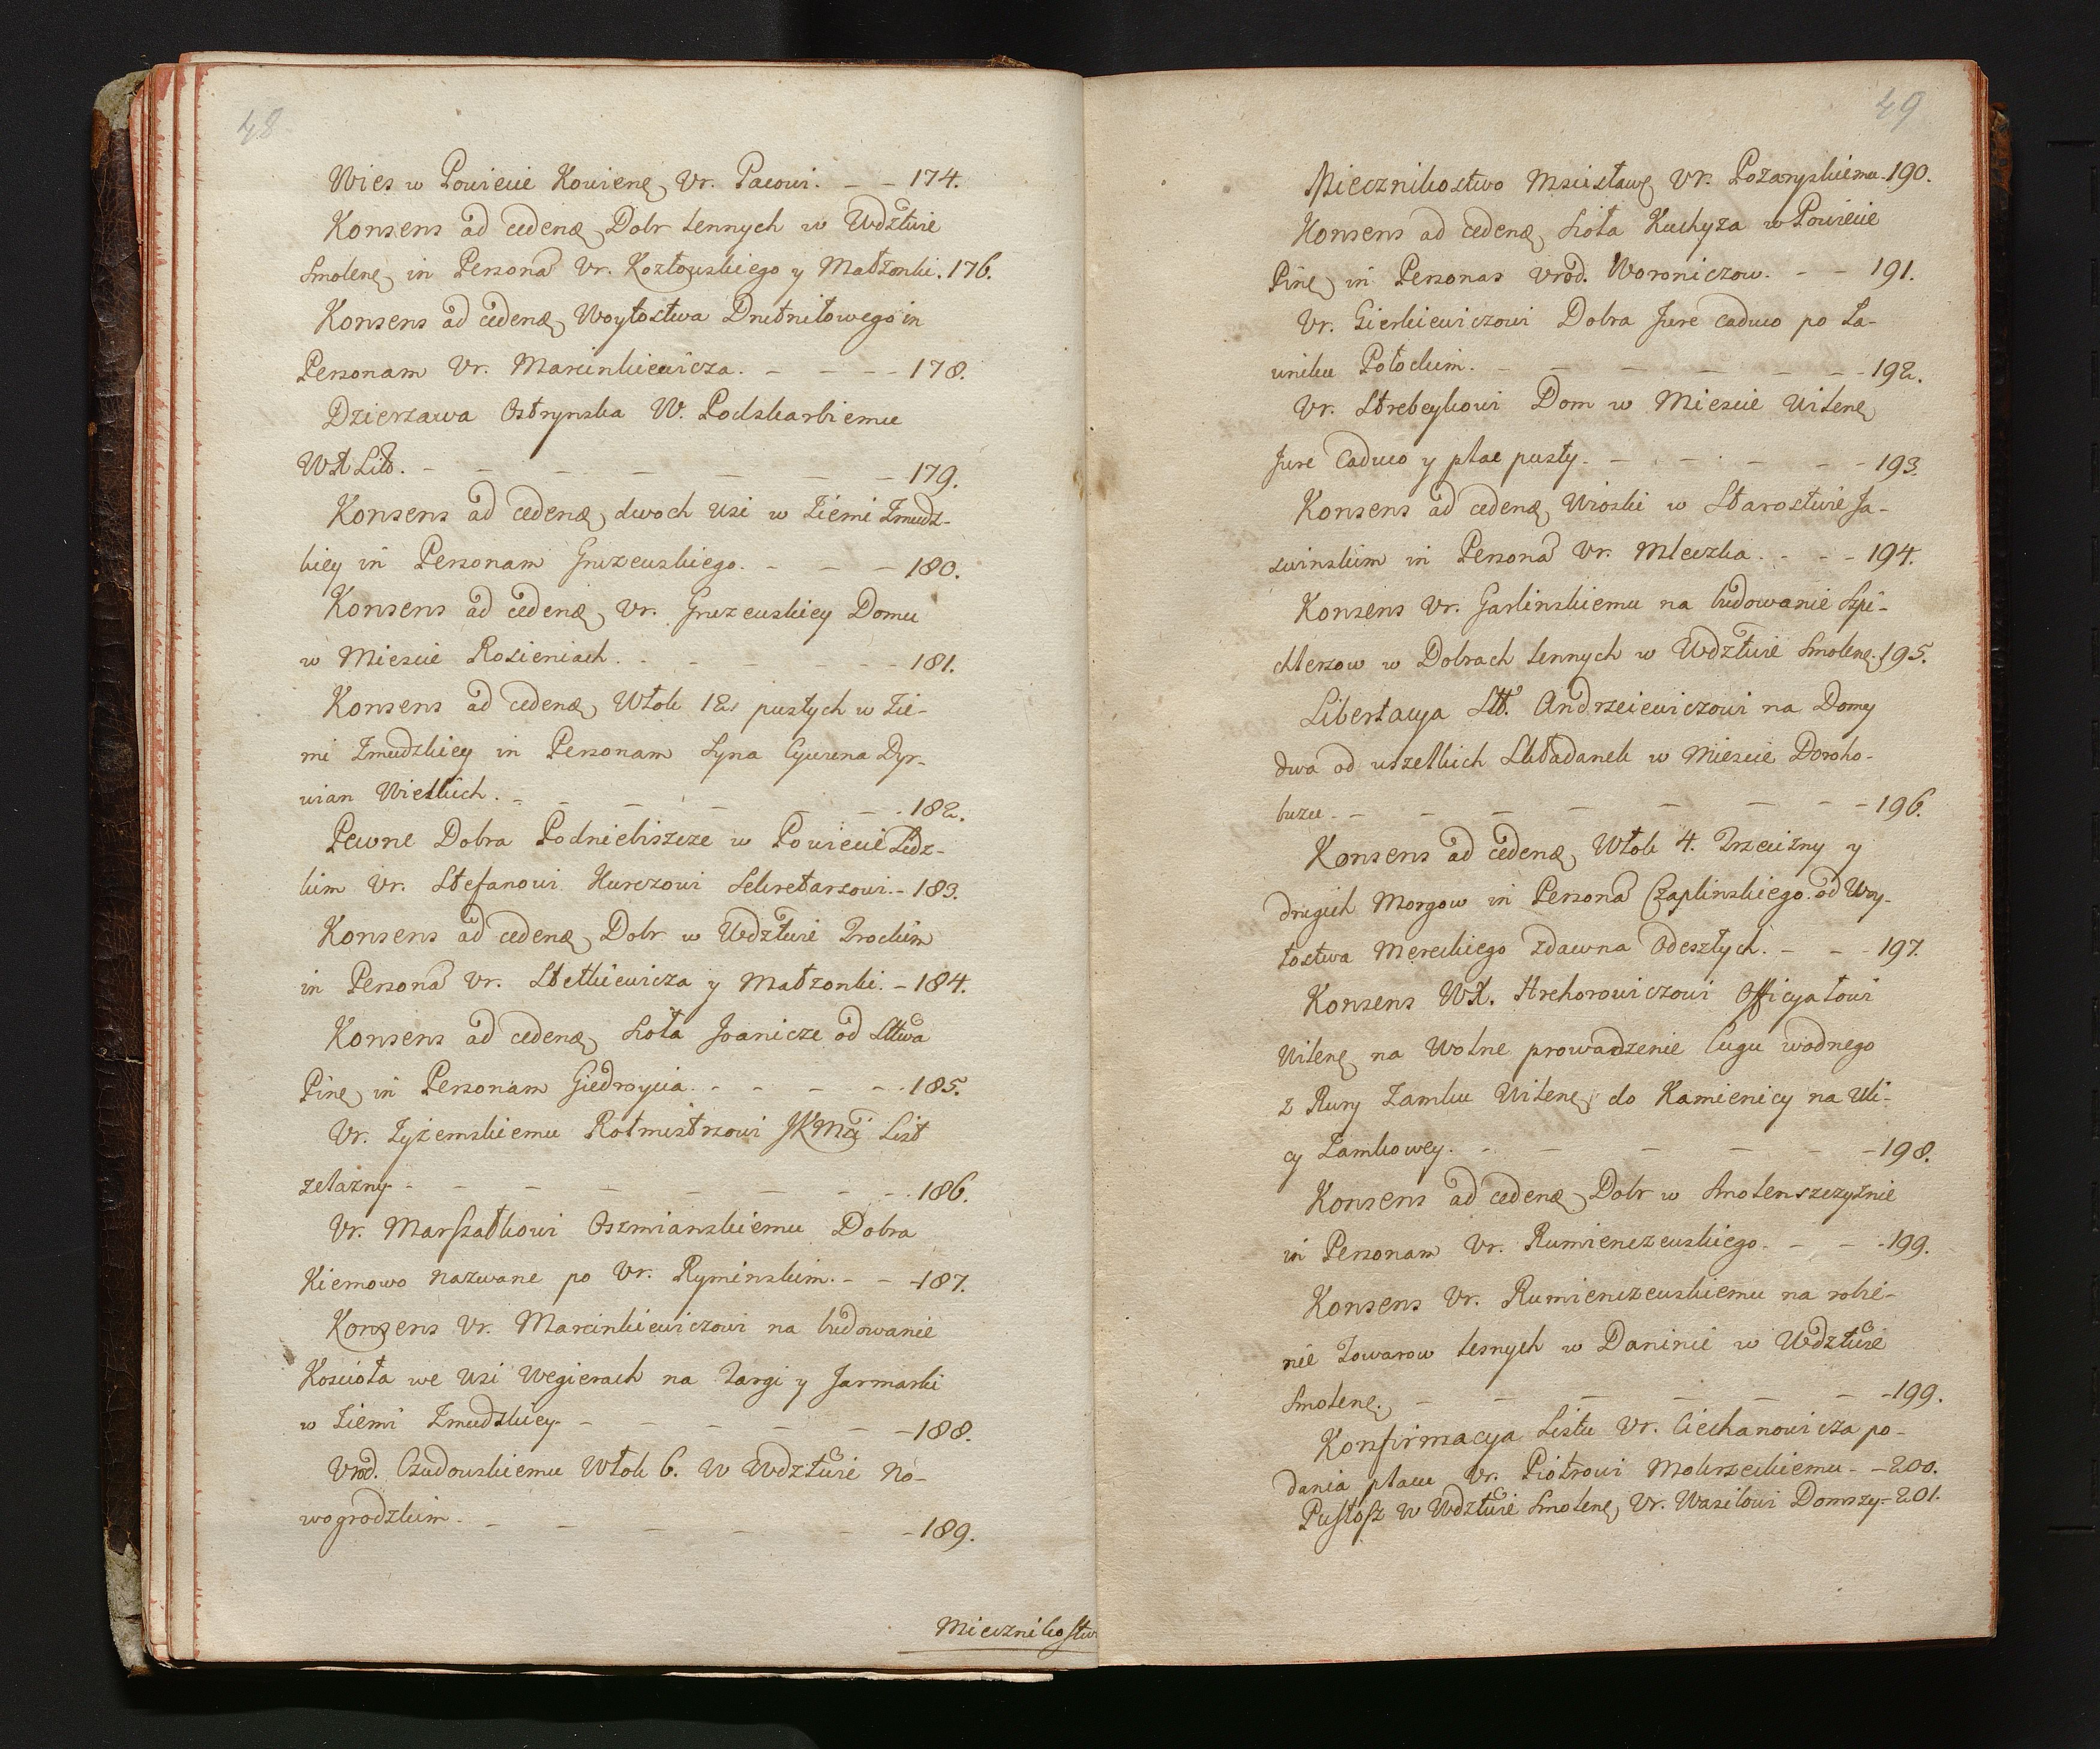 48
Wies w Powiecie Kowieng Ur. Pacowi. — — 174.
Konsens ad cedenđ Dobr lennych w Wdztwie
Smoleng in Personā Ur. Kozłowskiego y Małżonki. 176.
Konsens ad cedenđ Woytostwa Dnetniłowego in
Personam Ur. Marcinkiewicza. — — — 178.
Dzierzawa Ostrynska W. Podskarbiemu
WX Litt. — — — — — — 179.
Konsens ad cedenđ dwoch wsi w Ziemi Zmudz-
kiey in Personam Gruzewskiego. — — — 180.
Konsens ad cedenđ Ur. Gruzewskiey Domu
w Miescie Rosieniach. — — — — 181.
Konsens ad cedenđ Włok 12. pustych w Zie-
mi Zmudzkiey in Personam Syna Cywuna Dyr-
wian Wielkich. — — — — — 182.
Pewne Dobra Podniebiszcze w Powiecie Lidz-
kim Ur. Stefanowi Hurczowi Sekretarzowi. — 183.
Konsens ad cedenđ Dobr w Wdztwie Trockim
in Personā Ur. Stetkiewicza y Małzonki. — 184.
Konsens ad cedenđ Sioła Joanicze od Sttwa
Ping in Personam Giedroycia. — — — 185.
Ur. Zyzemskiemu Rotmistrzowi JKMci List
zelazny. — — — — — — 186.
Ur. Marszałkowi Oszmianskiemu Dobra
Kiemowo nazwane po Ur. Ryminskim. — — 187.
Konsens Ur. Marcinkiewiczowi na budowanie
Kosciola we wsi Wegierach na Targi y Jarmarki
w Ziemi Zmudzkiey. — — — — 188.
Urod. Czudowskiemu Włok 6. w Wdztwie No-
wogrodzkim. — — — — — 189.
Miecznikostw
49
Miecznikostwo Mscisławg Ur. Pozaryskiemu. 190.
Konsens ad cedenđ Sioła Kuchyza w Powiecie
Ping in Personas Urod. Woroniczow. — — 191.
Ur. Gierkiewiczowi Dobra Jure Caduco po Ła-
wniku Połockim. — — — — — — 192.
Ur. Strebeykowi Dom w Miescie Wileng
Jure Caduco y plac pusty. — — — — 193.
Konsens ad cedenđ Wioski w Starostwie Ja-
swinskim in Personā Ur. Mleczka. — — — 194.
Konsens Ur. Garlinskiemu na budowanie Szpi-
chlerzow w Dobrach lennych w Wdztwie Smoleng. 195.
Libertacya Stt. Andrzeiewiczowi na Domy
dwa od wszelkich Składanek w Miescie Doroho-
buzu. — — — — — — 196.
Konsens ad cedenđ Włok 4. Trzecizny y
drugich Morgow in Personā Czaplinskiego od Woy-
tostwa Mereckiego zdawna odeszłych. — — — 197.
Konsens WX. Hrehorowiczowi Officyałowi
Wileng na Wolne prowadzenie Cugu wodnego
z Rury Zamku Wileng do Kamienicy na Uli-
cy Zamkowey. — — — — — 198.
Konsens ad cedenđ Dobr w Smolenszczyznie
in Personam Ur. Rumienczewskiego. — — — 199.
Konsens Ur. Rumienczewskiemu na robie-
nie Towarow lesnych w Daninie w Wdztwie
Smoleng. — — — — — 199.
Konfirmacya Listu Ur. Ciechanowicza po-
dania placu Ur. Piotrowi Mokrzeckiemu — — 200.
Pustosz w Wdztwie Smoleng Ur. Wasilowi Domszy — 201.